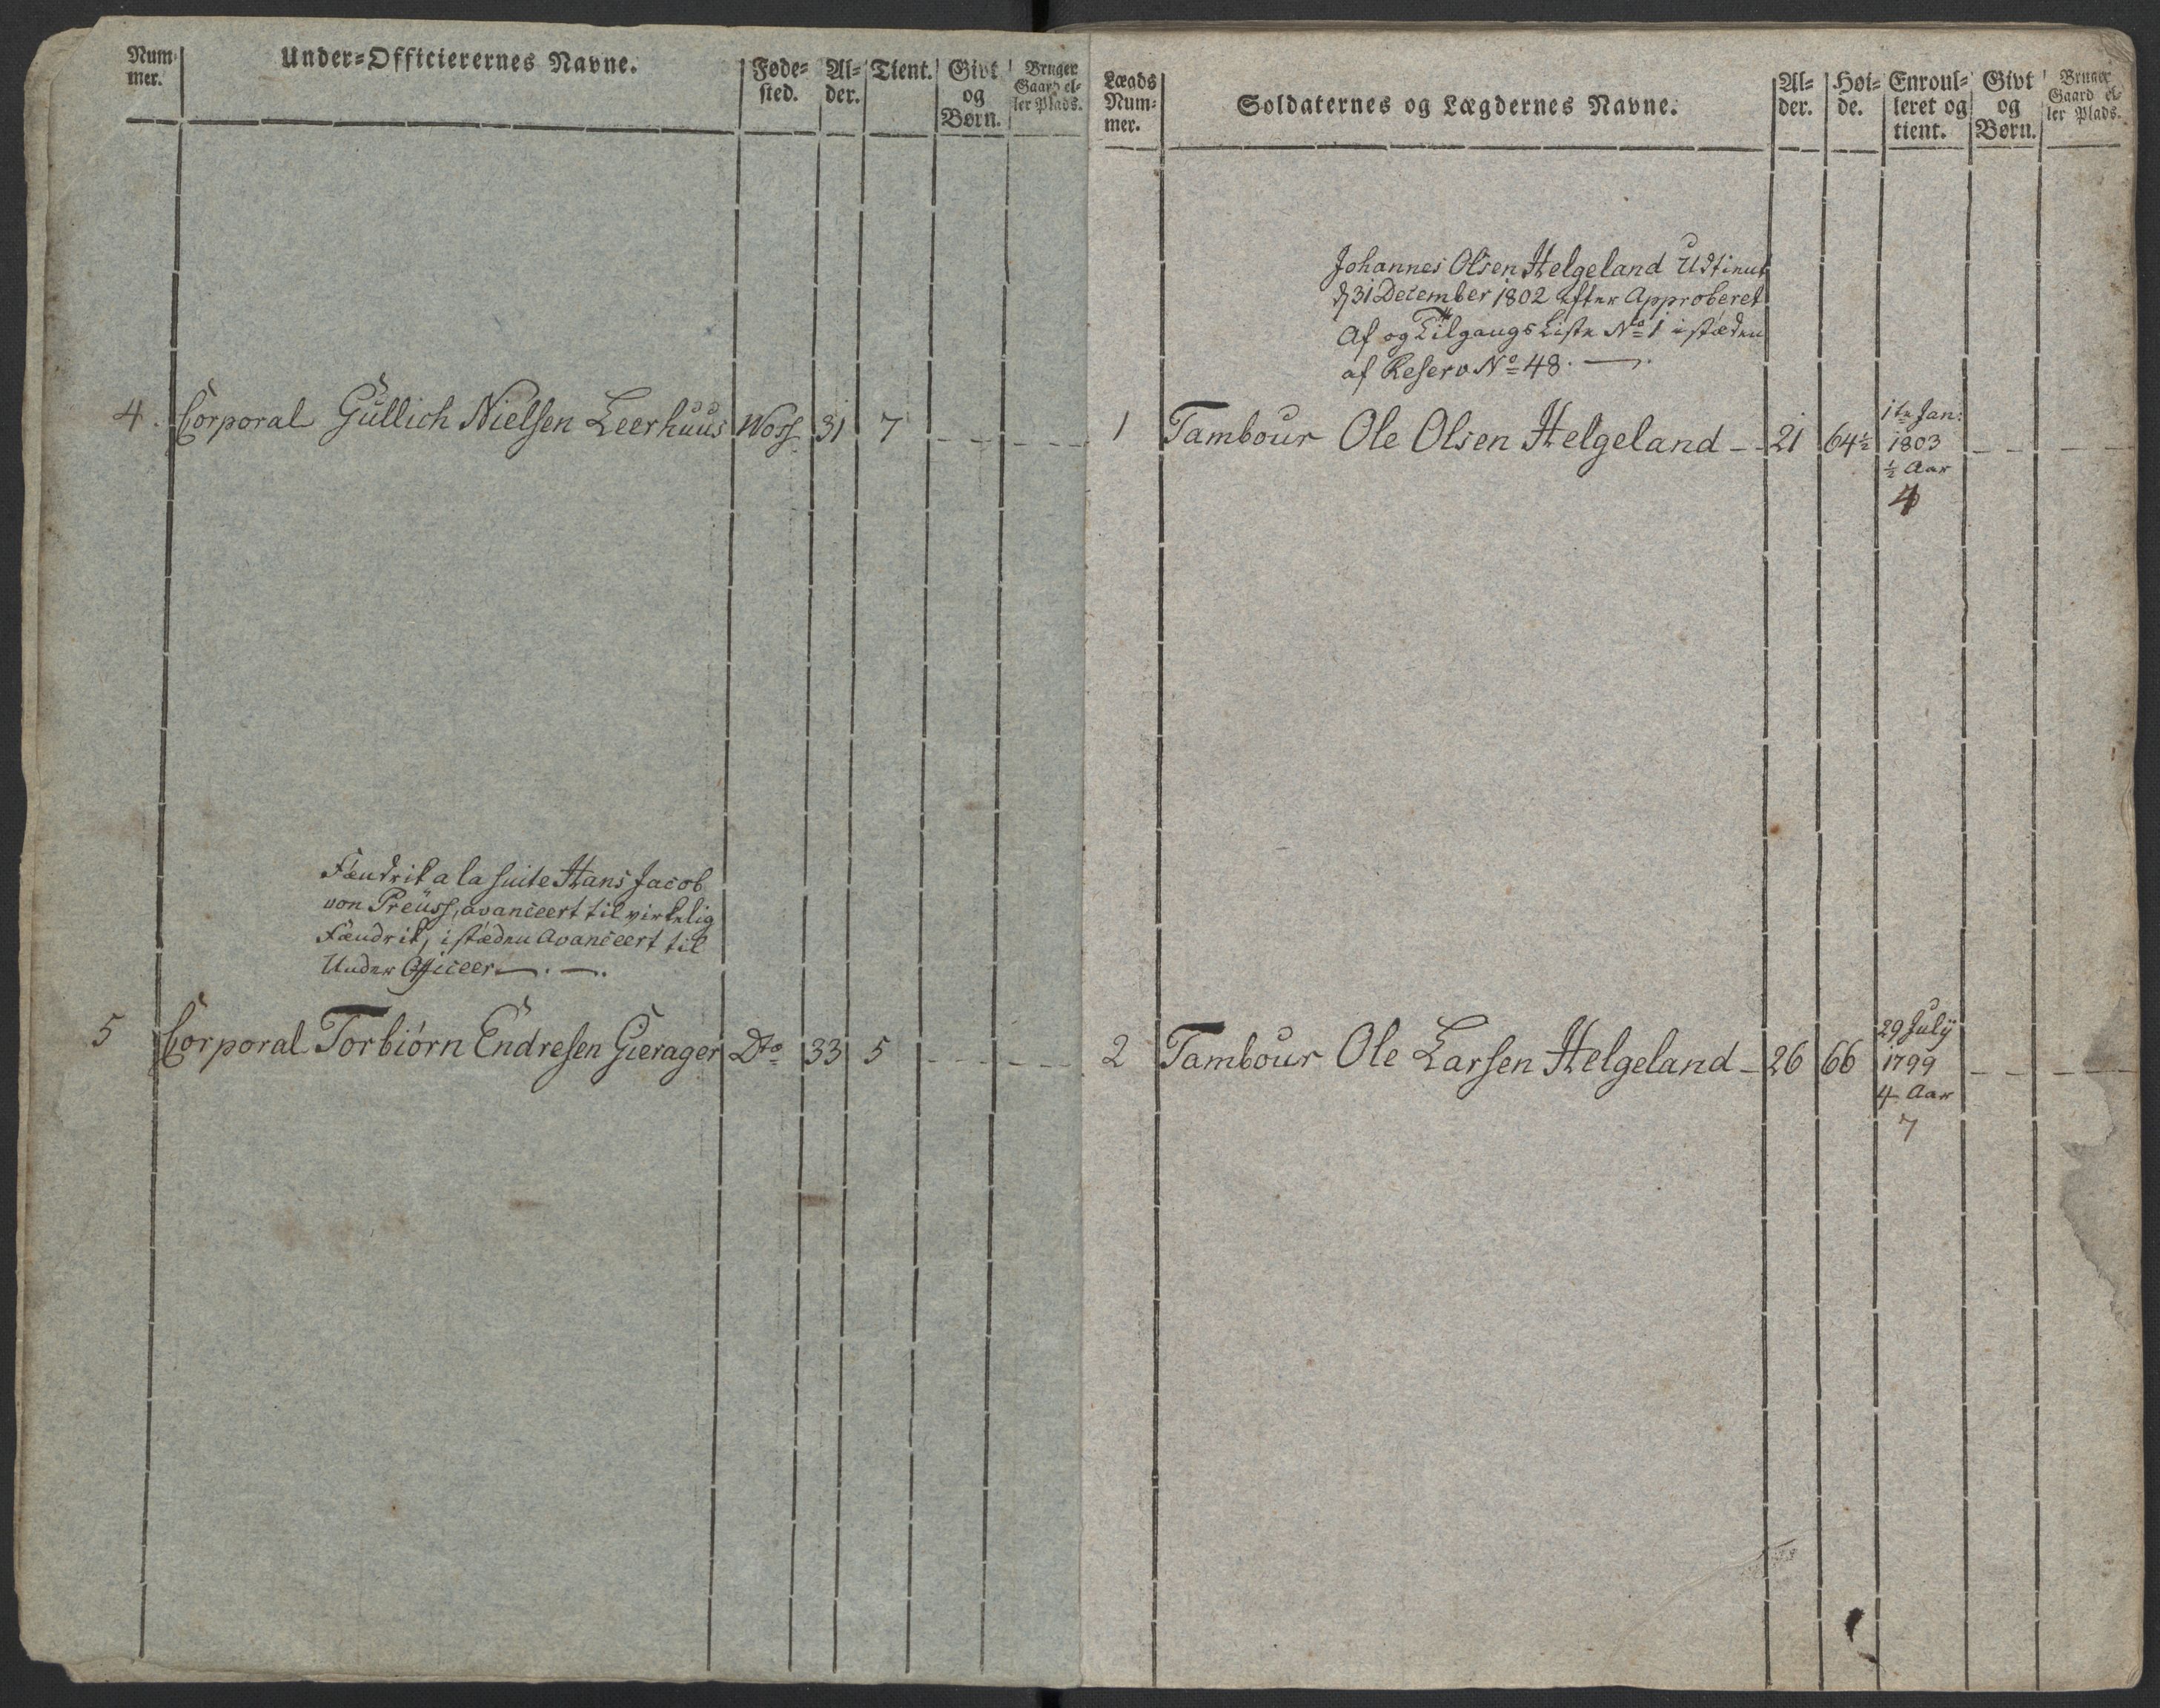 Num-
mer.
Under-Officierernes Navne.
Føde-
sted.
Al-
der.
Tient.
Givt
og
Børn.
Bruger
Gaard el-
ler Plads.
4. Corporal Gullich Nielsen Leerhuus Woss 31 7 - - - - -
Fændrik a la suite Hans Jacob
von Preuss, avanceert til virkelig
Fændrik, i stæden Avanceert til
Under Officeer —. —.
5 Corporal Torbiørn Endresen Gierager Dto 33 5 - - - - -
Lægds
Num-
mer.
Soldaternes og Lægdernes Navne.
Al-
der.
Høi-
de.
Enroul-
leret og
tient.
Givt
og
Børn.
Bruger
Gaard el-
ler Plads.
Johannes Olsen Helgeland Udtient
d 31 December 1802 efter Approberet
Af og Tilgangs Liste No 1 i stæden
af Reserv No 48. —.
1 Tambour Ole Olsen Helgeland - - 21 64½ 1te Jan:
1803 - - - -
½ Aar
4
2 Tambour Ole Larsen Helgeland - 26 66 29 July
1799 - - - -
4 Aar
7